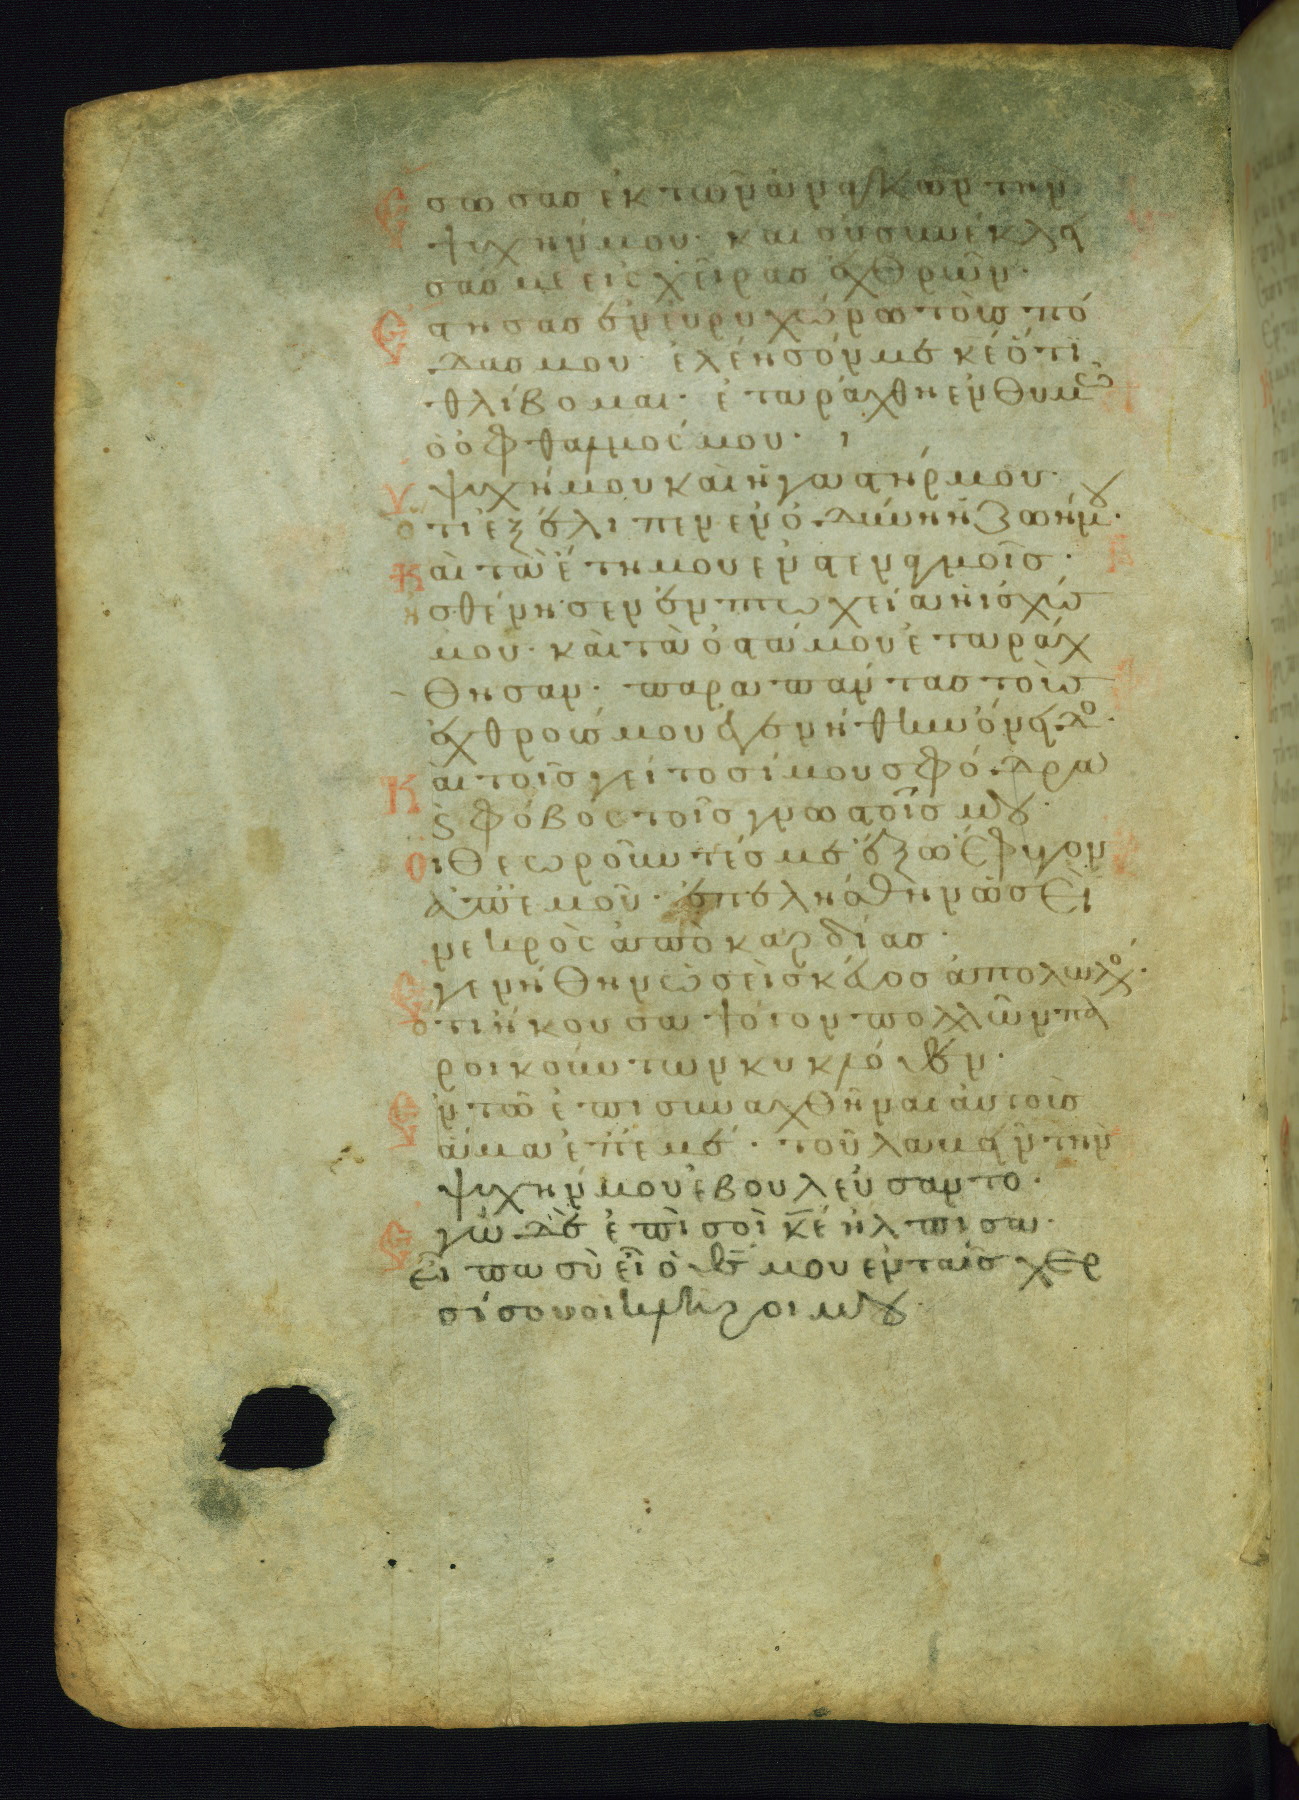 Ἔσωσας ἐκ τῶν ἀναγκῶν τὴν
ψυχήν μου· καὶ οὐ συνέκλει
σάς με εἰς χεῖρας ἐχθρῶν·
Ἔστησας ἐν εὐρυχώρω τοὺς πό
δας μου· ἐλέησόν με κε ὅτι
θλίβομαι· ἐταράχθη ἐν θυμῶ
ὁ ὀφθαλμός μου· ἡ
ψυχή μου καὶ ἡ γαστήρ μου·
ὅτι ἐξέλιπεν ἐν ὀδύνη ἡ ζωή μου·
Καὶ τὰ ἔτη μου ἐν στεναγμοῖς·
ησθένησεν ἐν πτωχεία ἡ ἰσχύς
μου· καὶ τὰ ὀστᾶ μου ἐταράχ
θησαν· παρα πάντας τοὺς
ἐχθρούς μου ἐγενήθην ὄνειδο·
Καὶ τοῖς γείτοσί μου σφόδρα
ϛ φόβος τοῖς γνωστοῖς μου·
Οἱ θεωροῦντές με ἔξω ἔφυγον
ἀπ ἐμοῦ· ἐπελήσθην ὡσεὶ
νεκρὸς ἀπὸ καρδίας·
Ἐγενήθην ὡσεὶ σκεῦος ἀπολωλός·
ὅτι ἤκουσα ψόγον πολλῶν πα
ροικούντων κυκλόθεν·
Ἐν τῶ ἐπισυναχθῆναι αὐτοὺς
ἅμα ἐπ ἐμέ· τοῦ λαβεῖν τὴν
ψυχήν μου ἐβουλεύσαντο·
Ἐγὼ δὲ ἐπὶ σοὶ κε ἤλπισα·
εἶπα σὺ εἶ ὁ θς μου ἐν ταῖς χερ
σί σου οἱ κλῆροι μου·